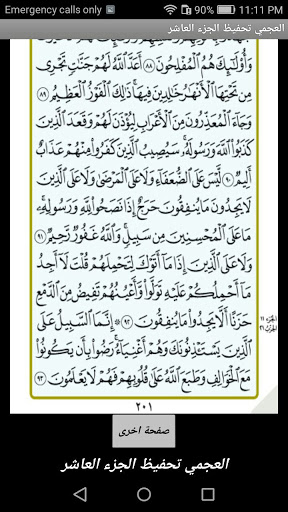 Emergency calls only
11:11 PM
العجمي تحفيظ الجزء العاشر
وَأُوْلَٰٓئِكَ هُمُ ٱلْمُفْلِحُونَ ٨٨ أَعَدَّ ٱللَّهُ لَهُمْ جَنَّٰتٍ تَجْرِى
مِن تَحْتِهَا ٱلْأَنْهَٰرُ خَٰلِدِينَ فِيهَا ذَٰلِكَ ٱلْفَوْزُ ٱلْعَظِيمُ ٨٩
وَجَآءَ ٱلْمُعَذِّرُونَ مِنَ ٱلْأَعْرَابِ لِيُؤْذَنَ لَهُمْ وَقَعَدَ ٱلَّذِينَ
كَذَبُوا۟ ٱللَّهَ وَرَسُولَهُۥ سَيُصِيبُ ٱلَّذِينَ كَفَرُوا۟ مِنْهُمْ عَذَابٌ
أَلِيمٌ ٩٠ لَّيْسَ عَلَى ٱلضُّعَفَآءِ وَلَا عَلَى ٱلْمَرْضَىٰ وَلَا عَلَى ٱلَّذِينَ
لَا يَجِدُونَ مَا يُنفِقُونَ حَرَجٌ إِذَا نَصَحُوا۟ لِلَّهِ وَرَسُولِهِۦ
مَا عَلَى ٱلْمُحْسِنِينَ مِن سَبِيلٍ وَٱللَّهُ غَفُورٌ رَّحِيمٌ ٩١
وَلَا عَلَى ٱلَّذِينَ إِذَا مَآ أَتَوْكَ لِتَحْمِلَهُمْ قُلْتَ لَآ أَجِدُ
مَآ أَحْمِلُكُمْ عَلَيْهِ تَوَلَّوا۟ وَّأَعْيُنُهُمْ تَفِيضُ مِنَ ٱلدَّمْعِ
حَزَنًا أَلَّا يَجِدُوا۟ مَا يُنفِقُونَ ٩٢ ۞ إِنَّمَا ٱلسَّبِيلُ عَلَى
ٱلَّذِينَ يَسْتَـْٔذِنُونَكَ وَهُمْ أَغْنِيَآءُ رَضُوا۟ بِأَن يَكُونُوا۟
مَعَ ٱلْخَوَالِفِ وَطَبَعَ ٱللَّهُ عَلَىٰ قُلُوبِهِمْ فَهُمْ لَا يَعْلَمُونَ ٩٣
الجزء ١١
الحزب ٢١
٢٠١
صفحة اخرى
العجمي تحفيظ الجزء العاشر